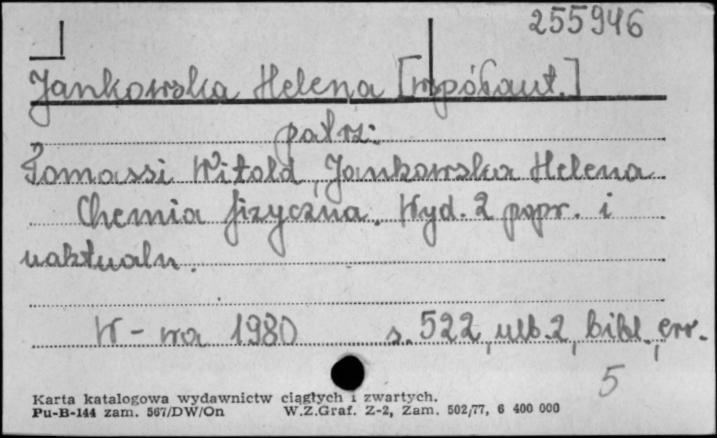 255946
Jankowska Helena [współaut.]
patrz:
Tomassi Witold, Jankowska Helena
Chemia fizyczna. Wyd. 2 popr. i
uaktualn.
W-wa 1980 s. 522, ulb. 2, bibl., err.
5
Karta katalogowa wydawnictw ciągłych i zwartych.
Pu-B-144 zam. 567/DW/On W.Z.Graf. Z-2, Zam. 502/77, 6 400 000